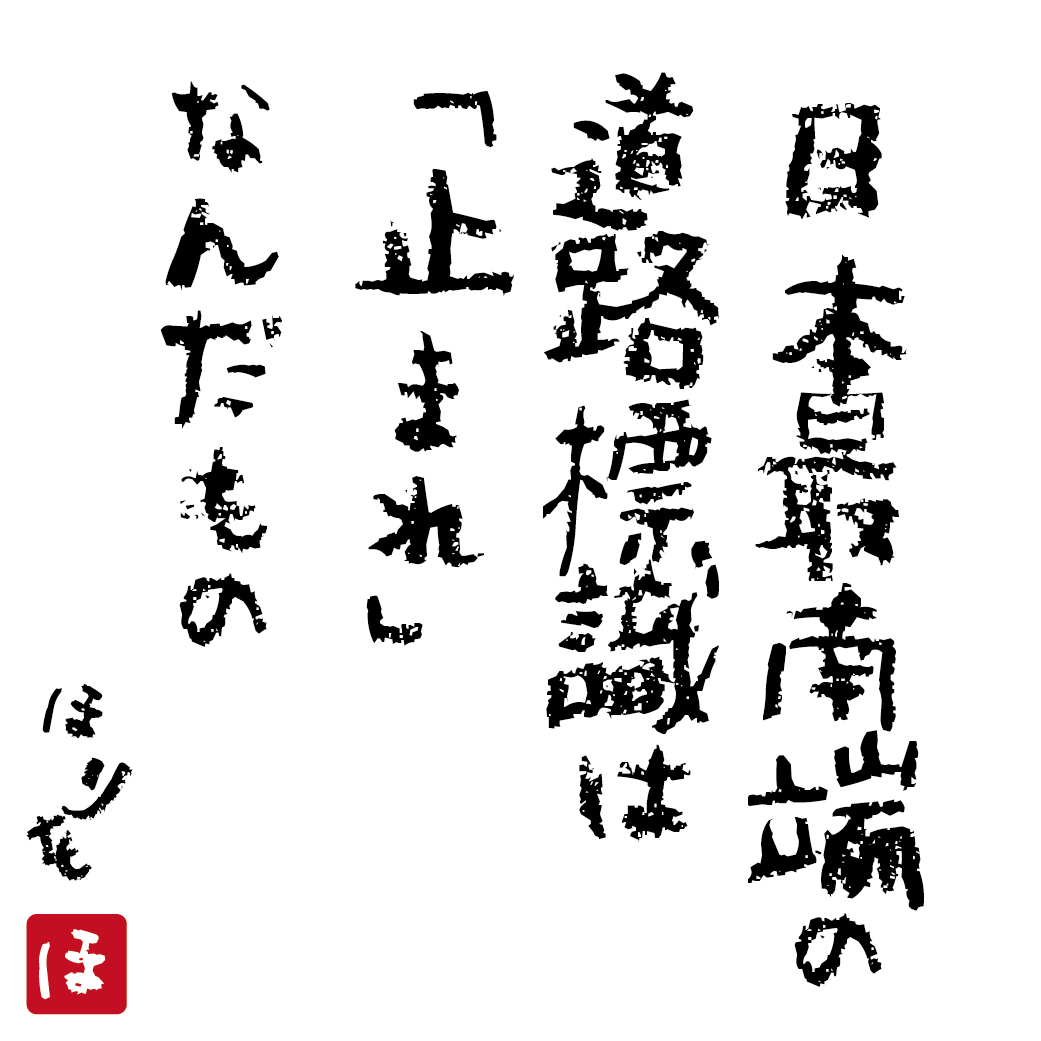 日本最南端の
道路標識は
「止まれ」
なんだもの
ほりを
ほ